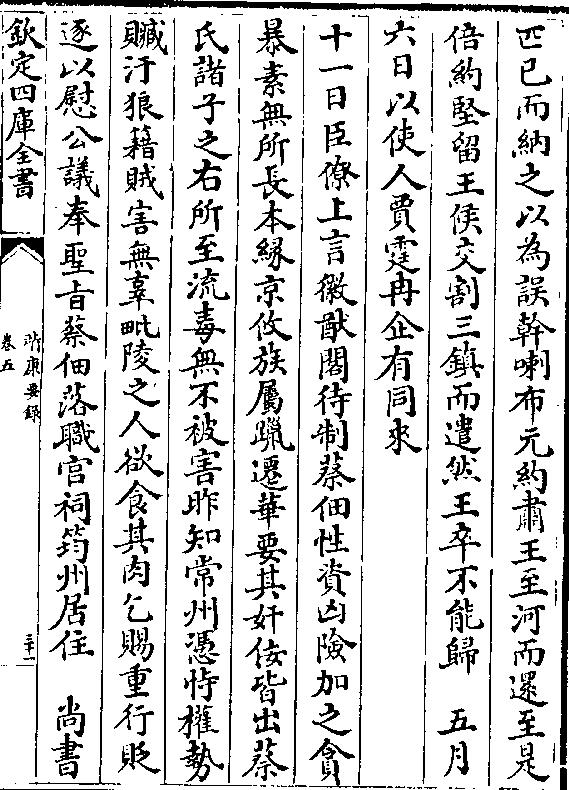 匹已而納之以為誤幹喇布元約肅王至河而還至是
倍約堅留王俟交割三鎮而遣然王卒不能歸　五月
六日以使人賈霆冉企有同來
十一日臣僚上言徽猷閣待制蔡佃性資凶險加之貪
暴素無所長本緣京攸族屬躐遷華要其奸佞皆出蔡
氏諸子之右所至流毒無不被害昨知常州憑恃權勢
贓汙狼籍賊害無辜毗陵之人欲食其肉乞賜重行貶
逐以慰公議奉聖旨蔡佃落職官祠筠州居住　尚書
欽定四庫全書
靖康要録
卷五
二十一